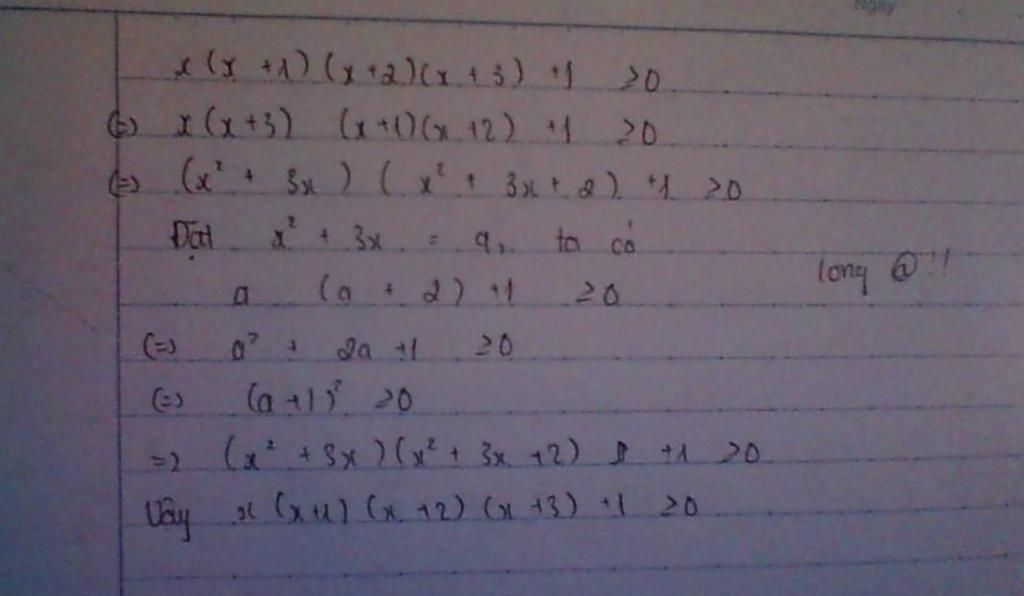 Ngày
x(x+1)(x+2)(x+3)+1 ≥0
(=) x(x+3) (x+1)(x+2)+1 ≥0
(=) (x² + 3x) (x² + 3x + 2) +1 ≥0
Đặt x² + 3x = a, ta có
a (a + 2) +1 ≥0
long @!!
(=) a² + 2a +1 ≥0
(=) (a+1)² ≥0
=) (x² + 3x)(x² + 3x +2) +1 ≥0
Vậy x (x+1) (x+2) (x+3) +1 ≥0